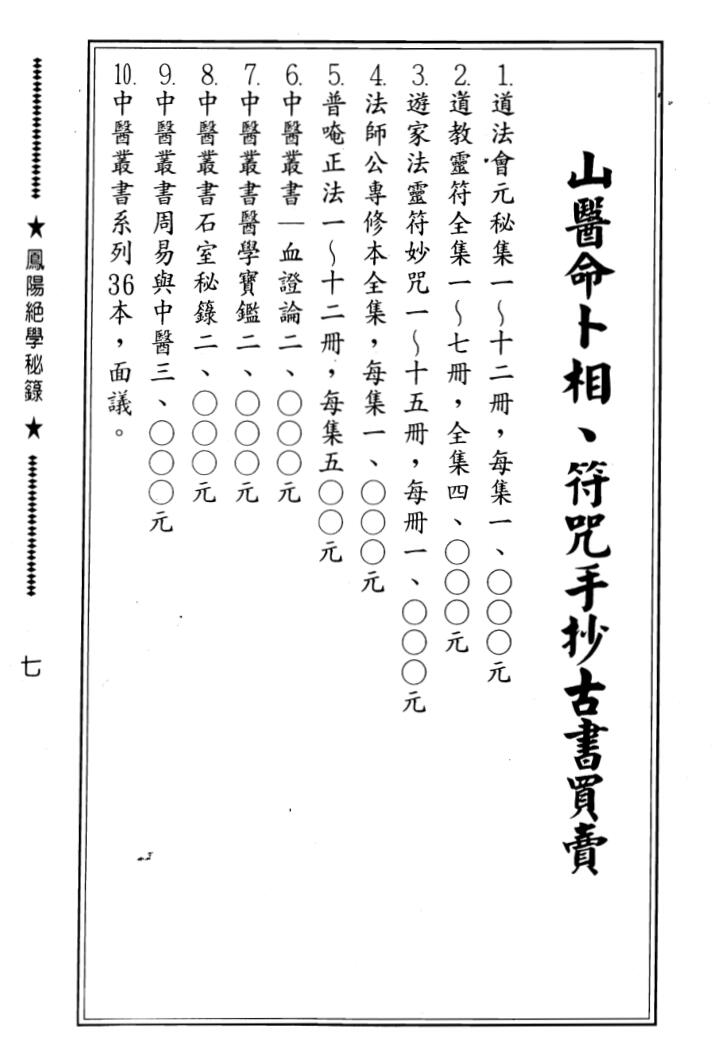 山醫命卜相、符咒手抄古書買賣
1.道法會元秘集一~十二冊,每集一、〇〇〇元
2.道教靈符全集一~七冊,全集四、〇〇〇元
3.遊家法靈符妙咒一~十五冊,每冊一、〇〇〇元
4.法師公專修本全集,每集一、〇〇〇元
5.普唵正法一~十二冊,每集五〇〇元
6.中醫叢書—血證論二、〇〇〇元
7.中醫叢書醫學寶鑑二、〇〇〇元
8.中醫叢書石室秘籙二、〇〇〇元
9.中醫叢書周易與中醫三、〇〇〇元
10.中醫叢書系列36本,面議。
★鳳陽絕學秘籙★
七